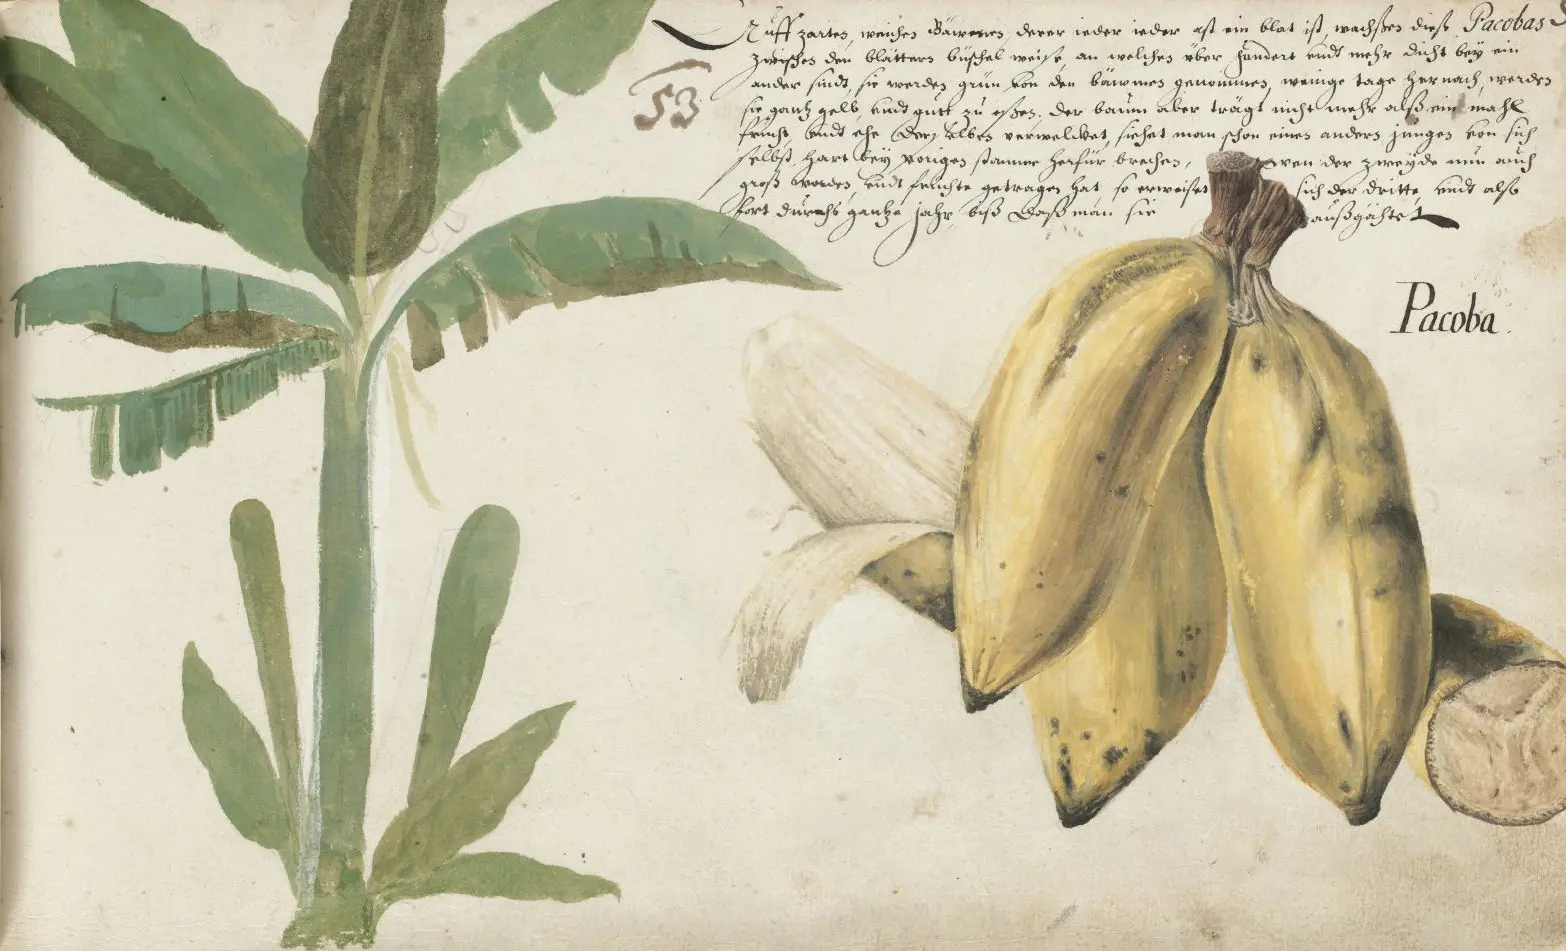 Auff zarten, weichen Bäwmen, derer ieder ieder ast ein blat ist, wachßen dieße Pacobas
zwischen den blättern büschel weise, an welchen über hundert undt mehr dicht bey ein
ander sindt, sie werden grün von den bäwmen genommen, wenige tage hernach, werden
sie gantz gelb, undt gutt zu eßen. der baum aber trägt nicht mehr alß ein mahl
frücht undt ehe derselben verwelcket, siehet man schon einen andern jungen von sich
selbst, hart bey vorigen stamme herfür brechen, wen der zweyde nun auch
groß worden undt früchte getragen hat, so erweiset sich der dritte, undt also
fort durchs gantze jahr, biß daß man sie außgähtet
53
Pacoba.